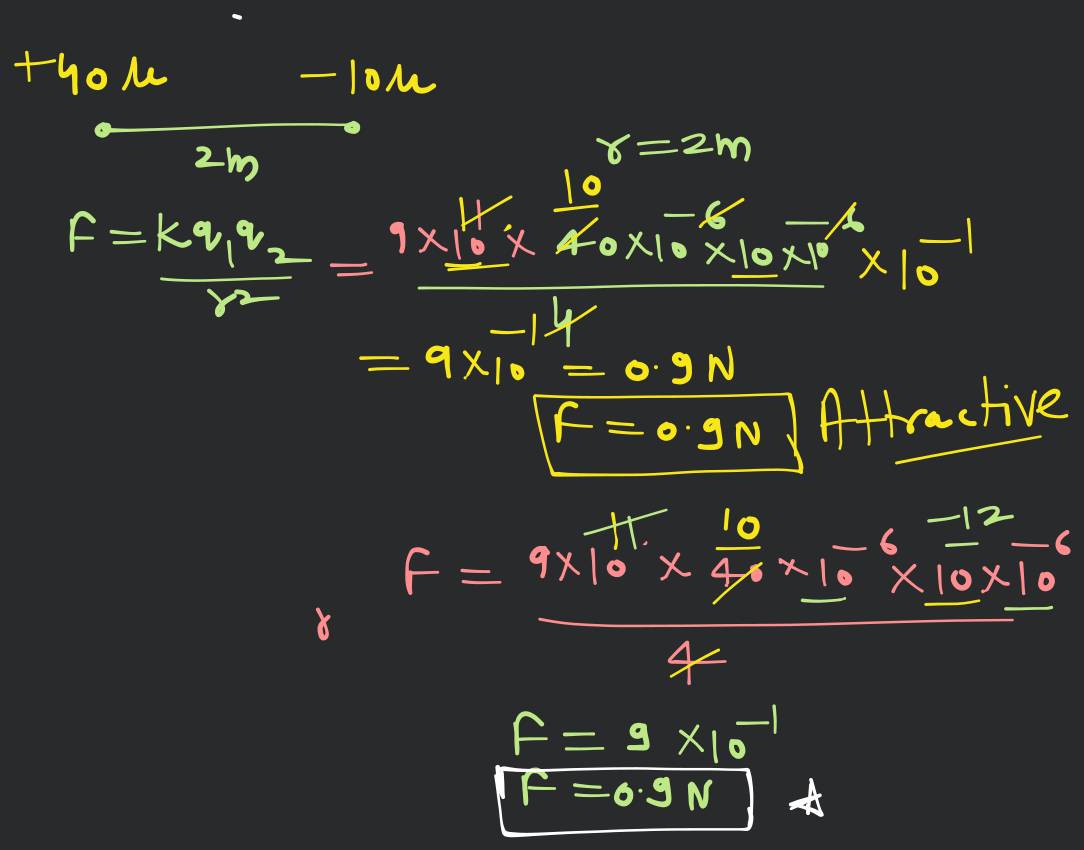 +40 μ −10μ
2m
r=2m
F = kq₁q₂ / r² = 9×10¹¹ × 40×10⁻⁶ ×10×10⁻⁶ / 4 ×10⁻¹
10
= 9×10⁻¹ = 0.9 N
F = 0.9 N Attractive
10 −12
F = 9×10¹¹ × 40 ×10⁻⁶ ×10×10⁻⁶ / 4
r
F = 9 ×10⁻¹
F = 0.9 N